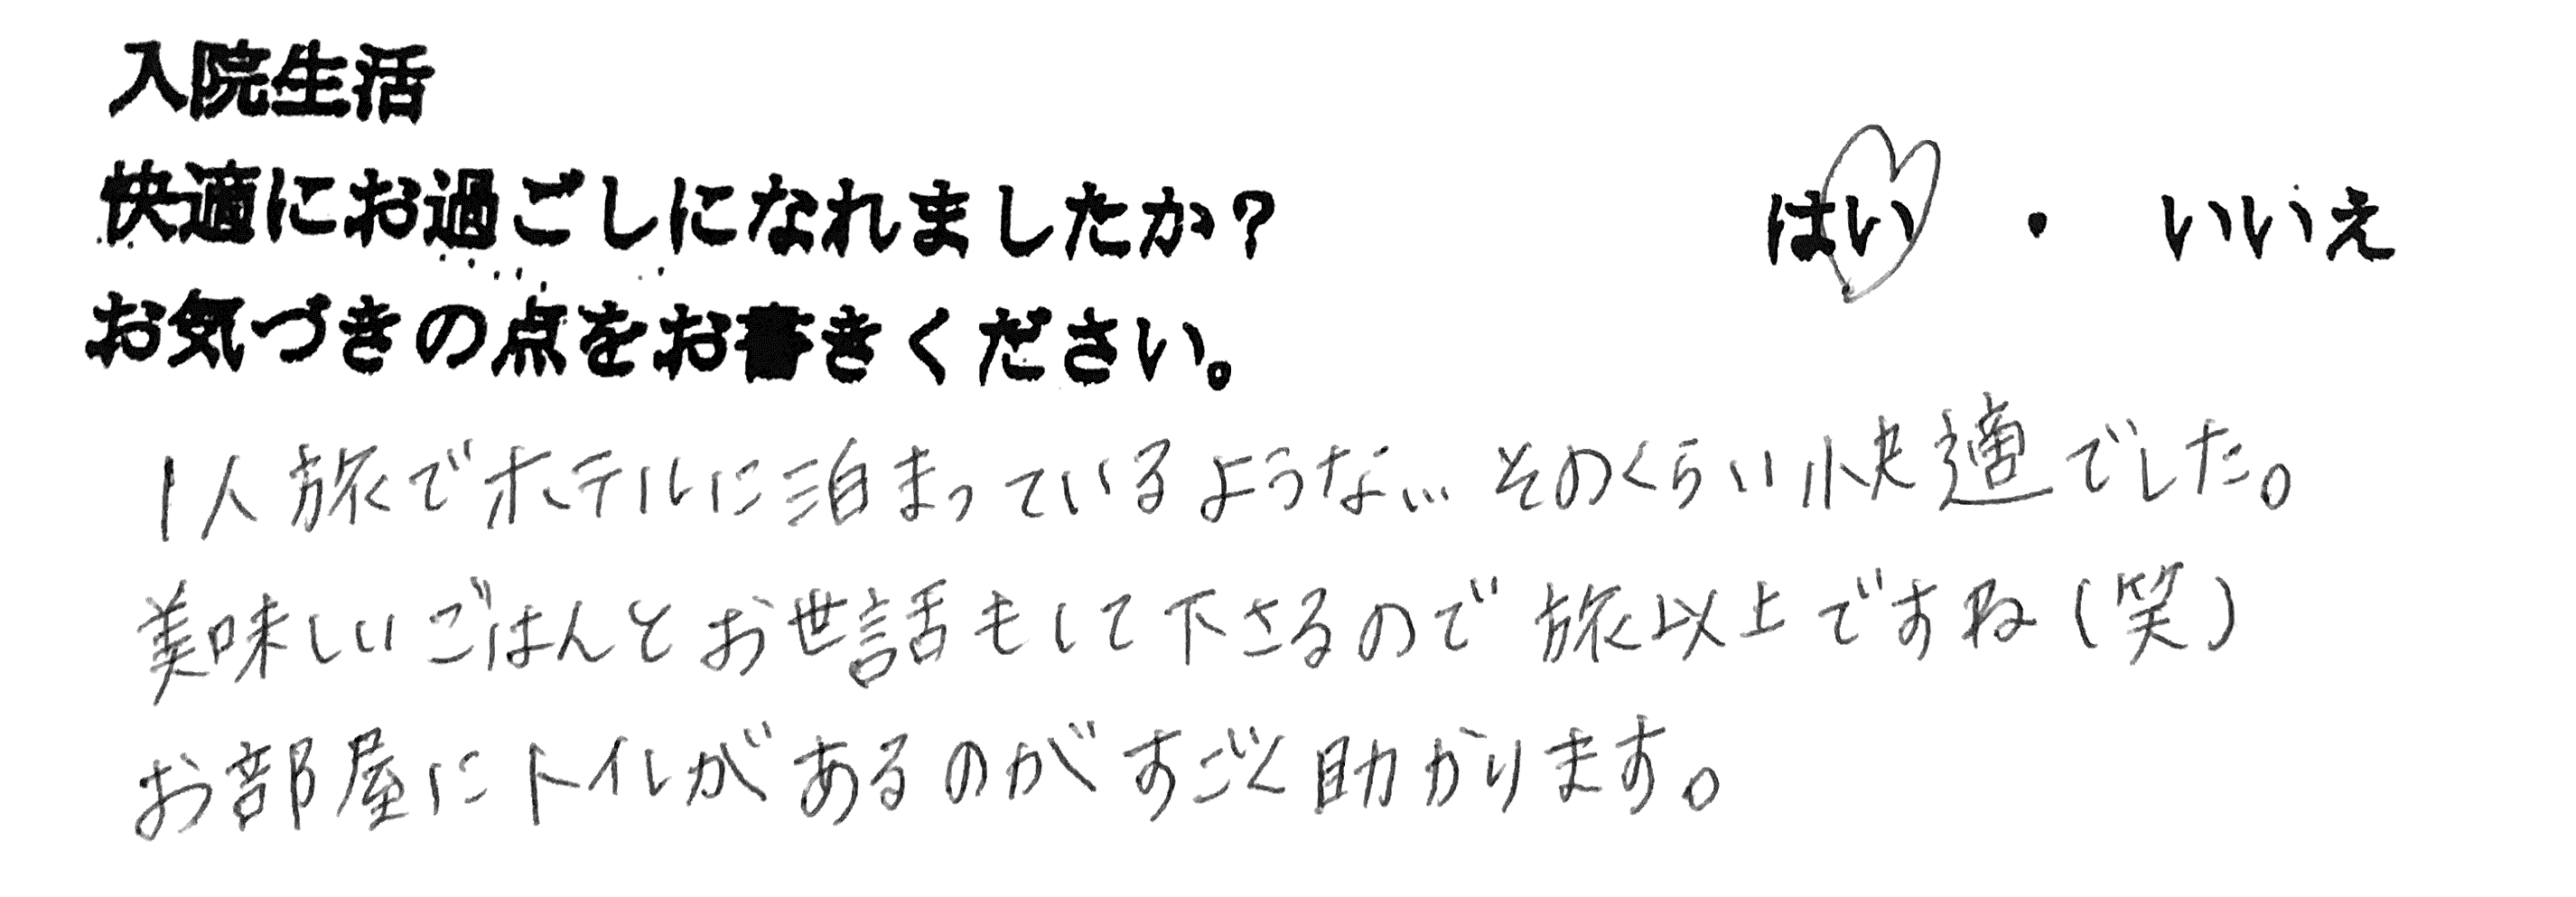 入院生活
快適にお過ごしになれましたか? はい ・ いいえ
お気づきの点をお書きください。
1人旅でホテルに泊まっているような… そのくらい快適でした。
美味しいごはんとお世話もして下さるので旅以上ですね(笑)
お部屋にトイレがあるのがすごく助かります。